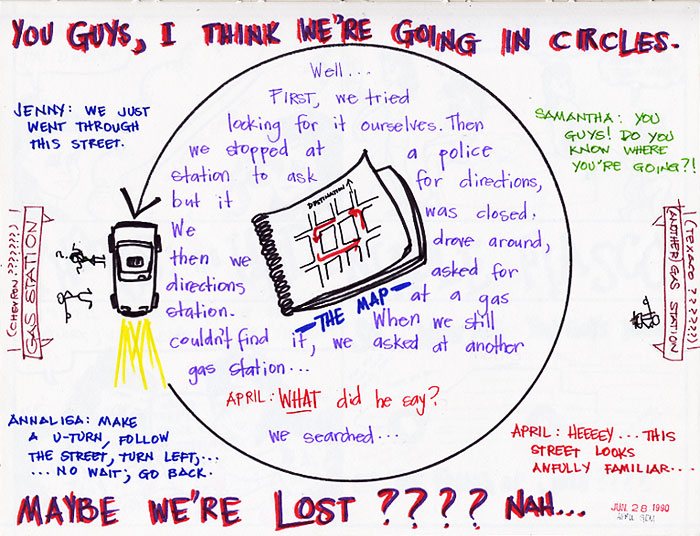 YOU GUYS, I THINK WE'RE GOING IN CIRCLES.
JENNY: WE JUST
WENT THROUGH
THIS STREET.
SAMANTHA: YOU
GUYS! DO YOU
KNOW WHERE
YOU'RE GOING?!
Well...
FIRST, we tried
looking for it ourselves. Then
we stopped at a police
station to ask for directions,
but it was closed.
We drove around,
then we asked for
directions at a gas
station. When we still
couldn't find it, we asked at another
gas station...
DESTINATION
THE MAP
(CHEVRON ???????)
GAS STATION
(TEXACO ???????)
(ANOTHER) GAS STATION
APRIL: WHAT did he say?
we searched...
ANNALISA: MAKE
A U-TURN, FOLLOW
THE STREET, TURN LEFT,...
... NO WAIT; GO BACK.
APRIL: HEEEEY... THIS
STREET LOOKS
AWFULLY FAMILIAR...
MAYBE WE'RE LOST ???? NAH...
JUN 28 1990